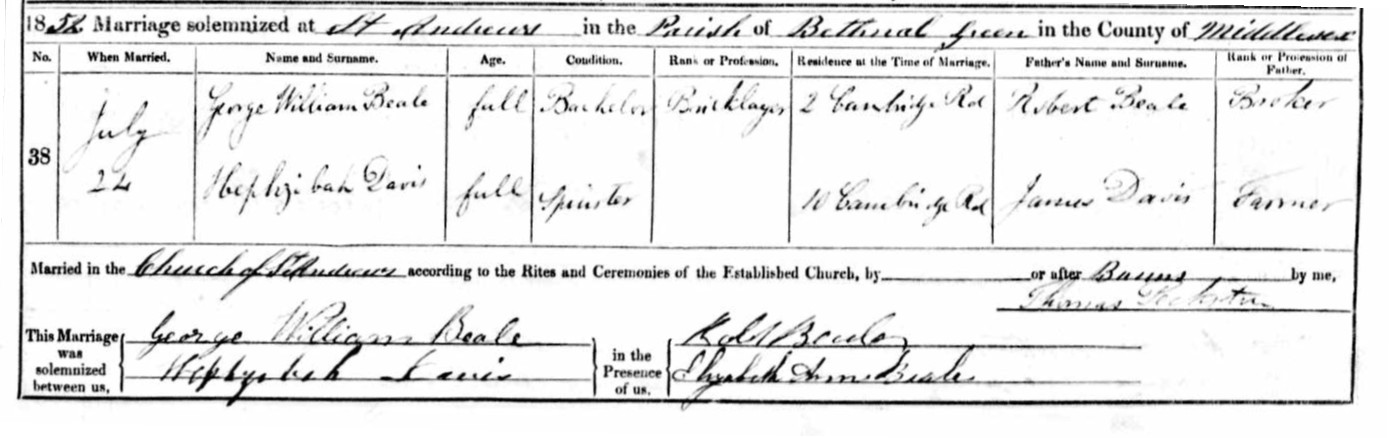 1852 Marriage solemnized at St Andrews in the Parish of Bethnal Green in the County of Middlesex
No. When Married. Name and Surname. Age. Condition. Rank or Profession. Residence at the Time of Marriage. Father's Name and Surname. Rank or Profession of Father.
38 July 24 George William Beale full Bachelor Bricklayer 2 Cambridge Rd Robert Beale Broker
Hephzibah Davis full Spinster 10 Cambridge Rd James Davis Farmer
Married in the Church of St Andrews according to the Rites and Ceremonies of the Established Church, by or after Banns by me,
Thomas
This Marriage was solemnized between us, George William Beale
Hephzibah Davis
in the Presence of us. Robt Beale
Elizabeth Ann Beale